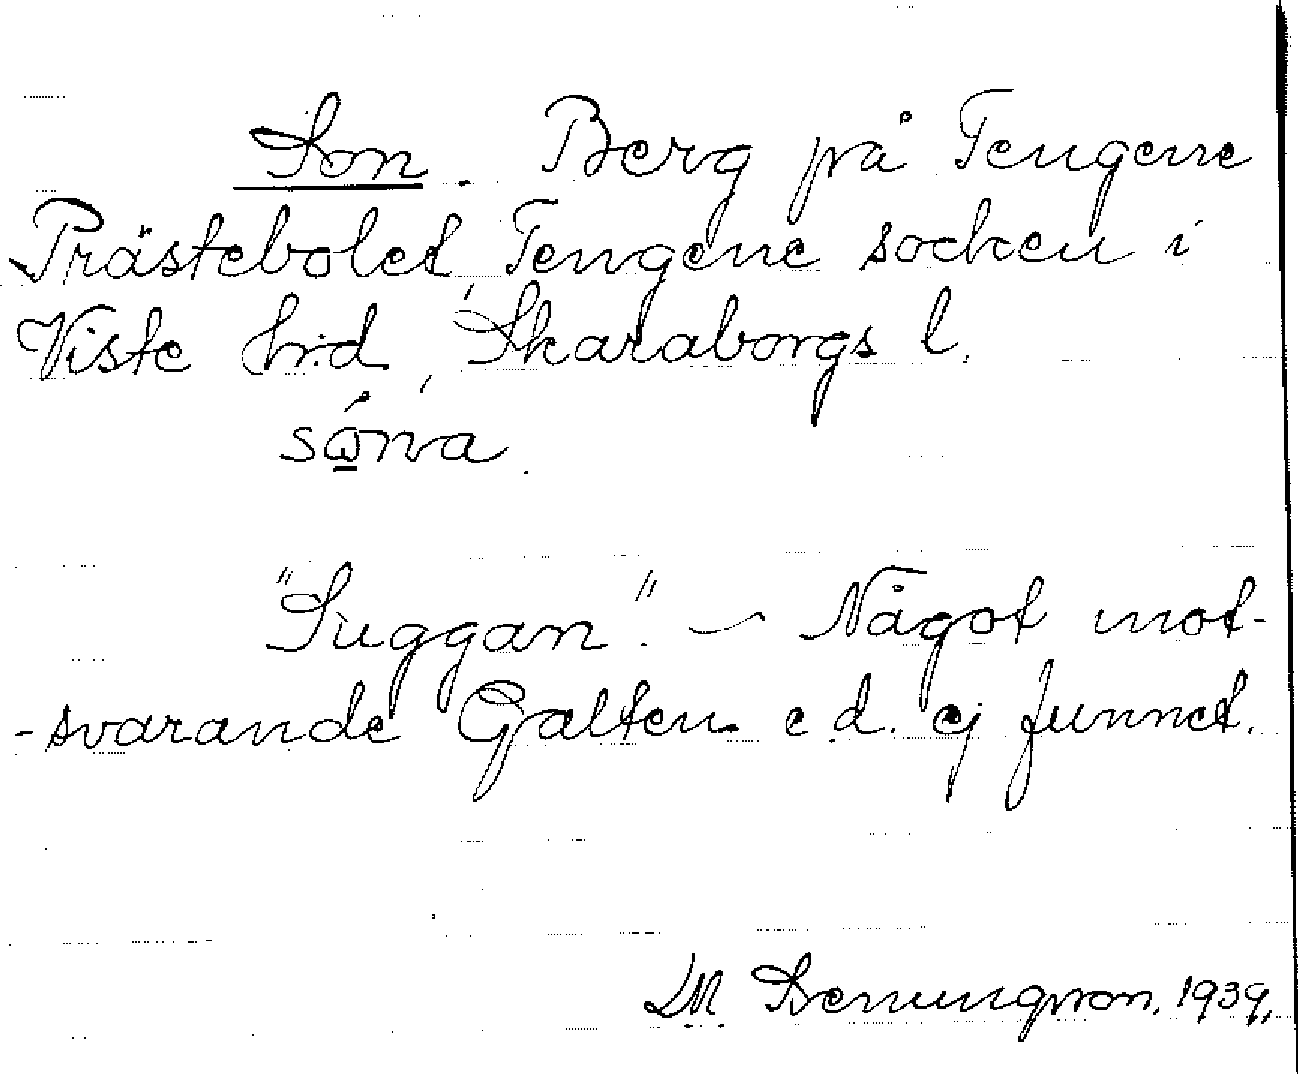 Son. Berg på Tengene
Prästebolet, Tengene socken i
Viste hrd, Skaraborgs l.
sωna.
"Suggan". ~ Något mot-
-svarande Galten e.d. ej funnet.
1939.